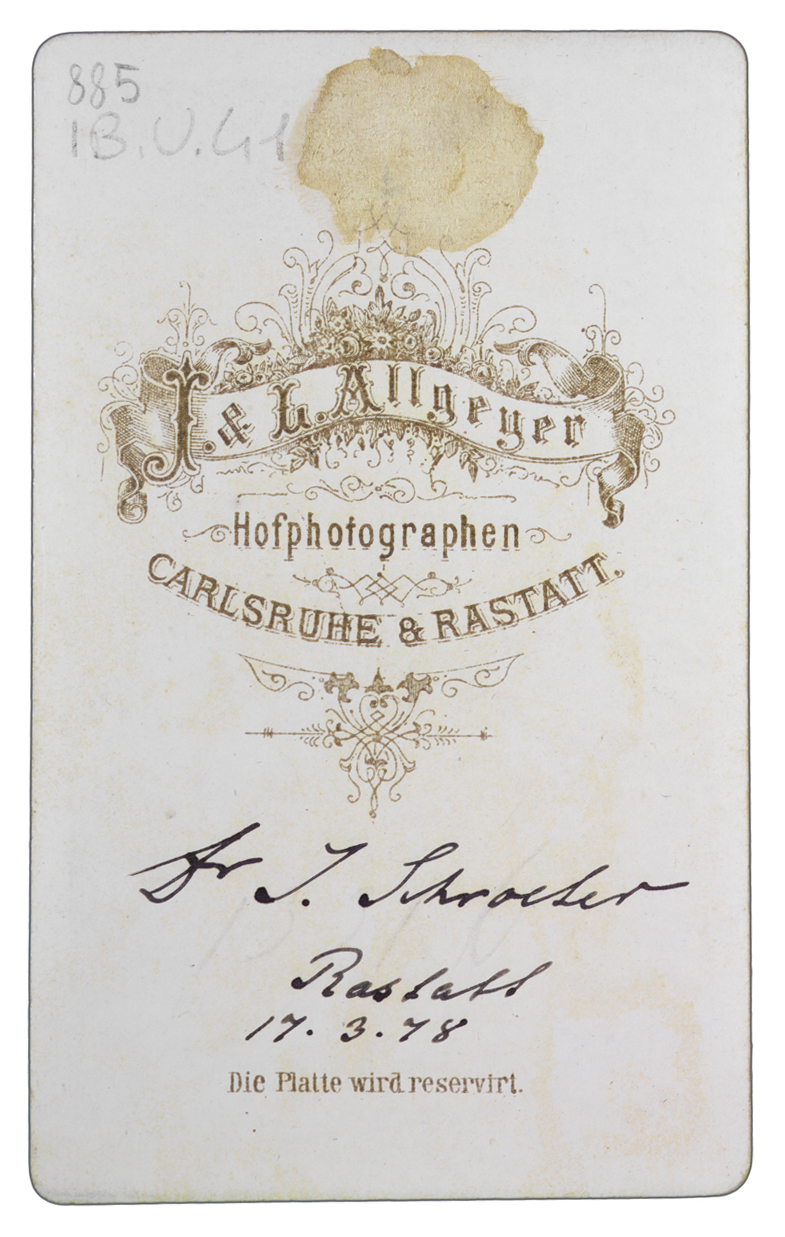 885
IB.V.41
J. & L. Allgeyer
Hofphotographen
CARLSRUHE & RASTATT.
Dr J. Schroeter
Rastatt
17. 3. 78
Die Platte wird reservirt.